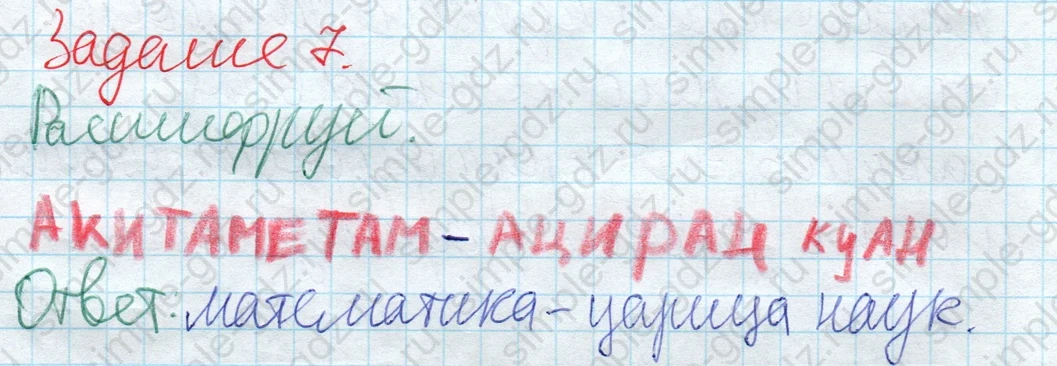 Задание 7.
Расшифруй.
АКИТАМЕТАМ - АЦИРАЦ КУАН
Ответ: математика - царица наук.